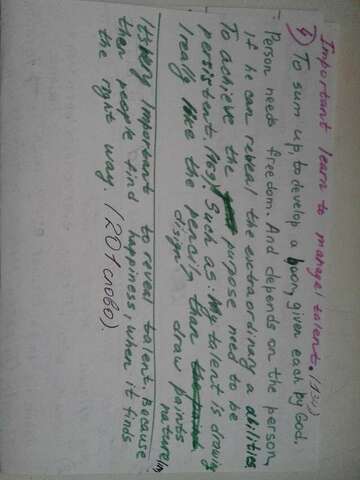 Important learn to manage talent. (134)
4) To sum up, to develop a boon, given each by God.
Person needs freedom. And depends on the person,
if he can reveal the extraordinary a abilities
To achieve the purpose need to be
persistent. Such as: My talent is drawing
I really like the pencils than draw paints
disign nature
It's very important to reveal talent. Because
then people find happiness, when it finds
the right way. (201 слово)